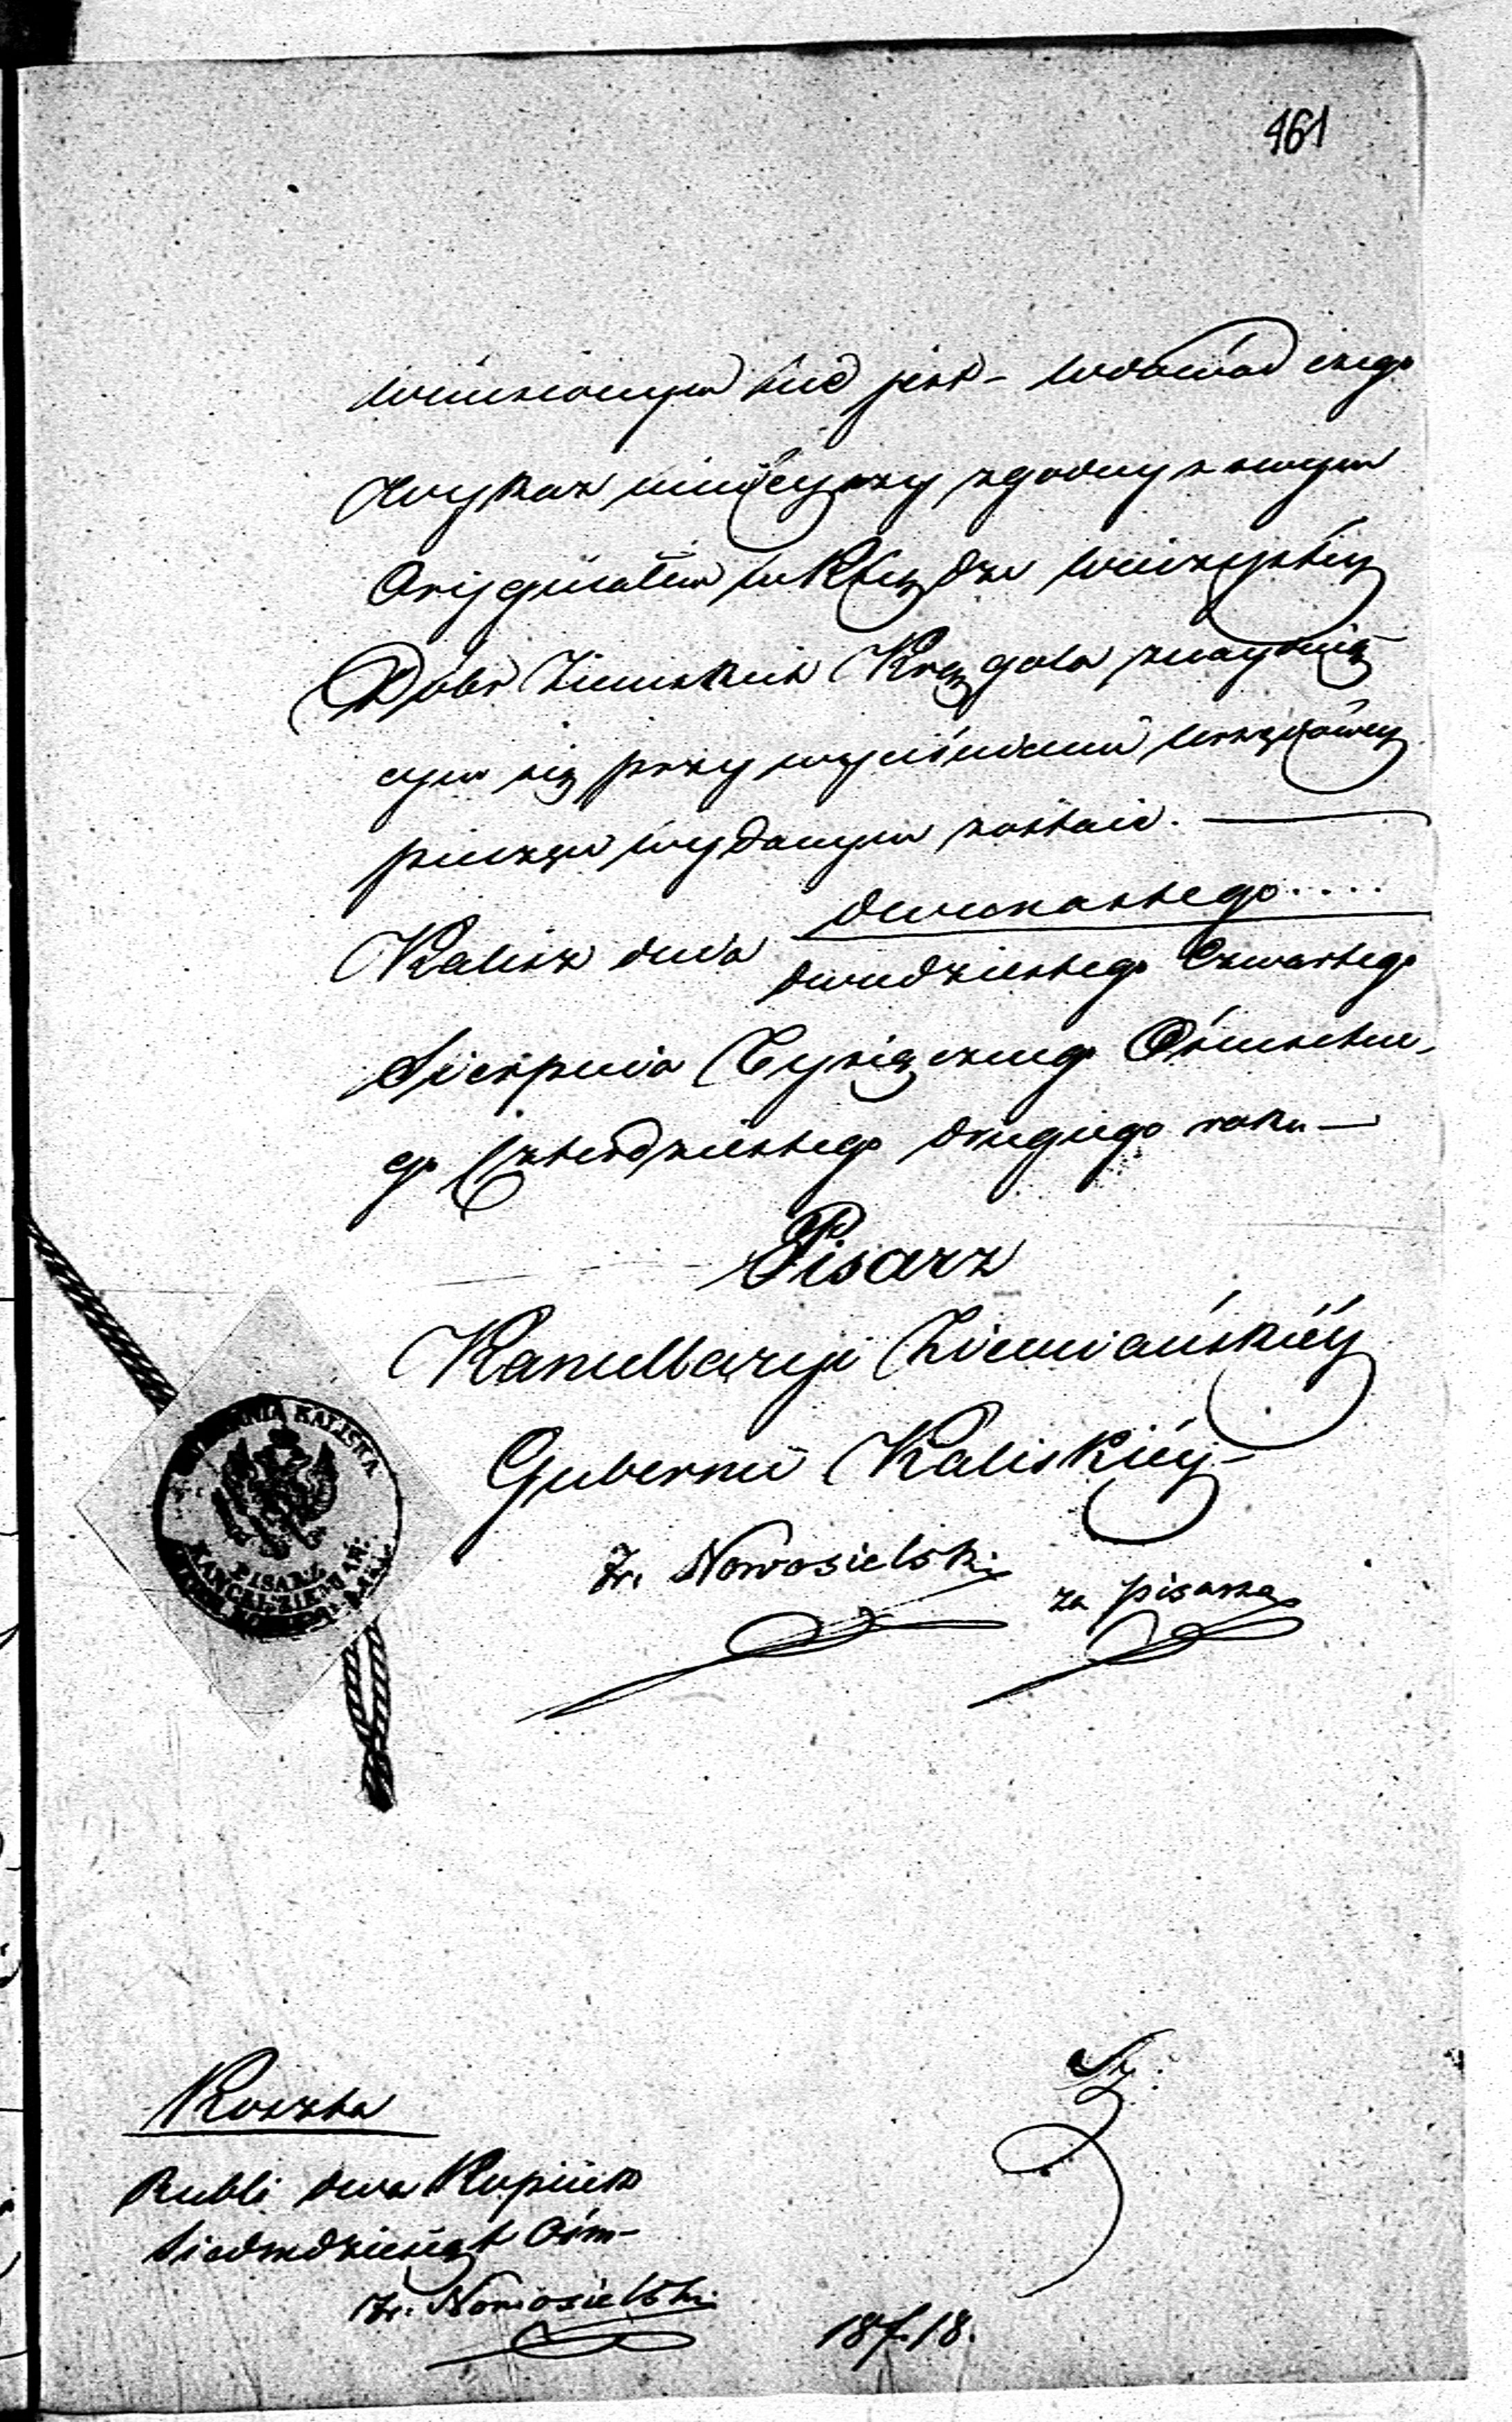 461
wniesionym nie jest – wdowód czego
Wykaz ninieyszy zgodny z swym
Oryginałem w Księdze wieczystéy
Dóbr Ziemskich Kręgola znayduią
cym się przy wyciśnieniu urzędowéy
pieczęci wydanym zostaie. —
Kalisz dnia dwunastego....
dwudziestego Czwartego
Sierpnia Tysiącznego Ośmsetne,
go Czterdziestego drugiego roku —
Pisarz
Kancellaryi Ziemiańskiéy
Gubernii Kaliskiéy –
Fr. Nowosielski za pisarza
GUBERNIA KALISKA
PISARZ
KANCEL: ZIEMIAŃ:
Koszta
Rubli dwa Kopiiek
siedmdziesiąt Ośm –
Fr. Nowosielski
18 f. 18.